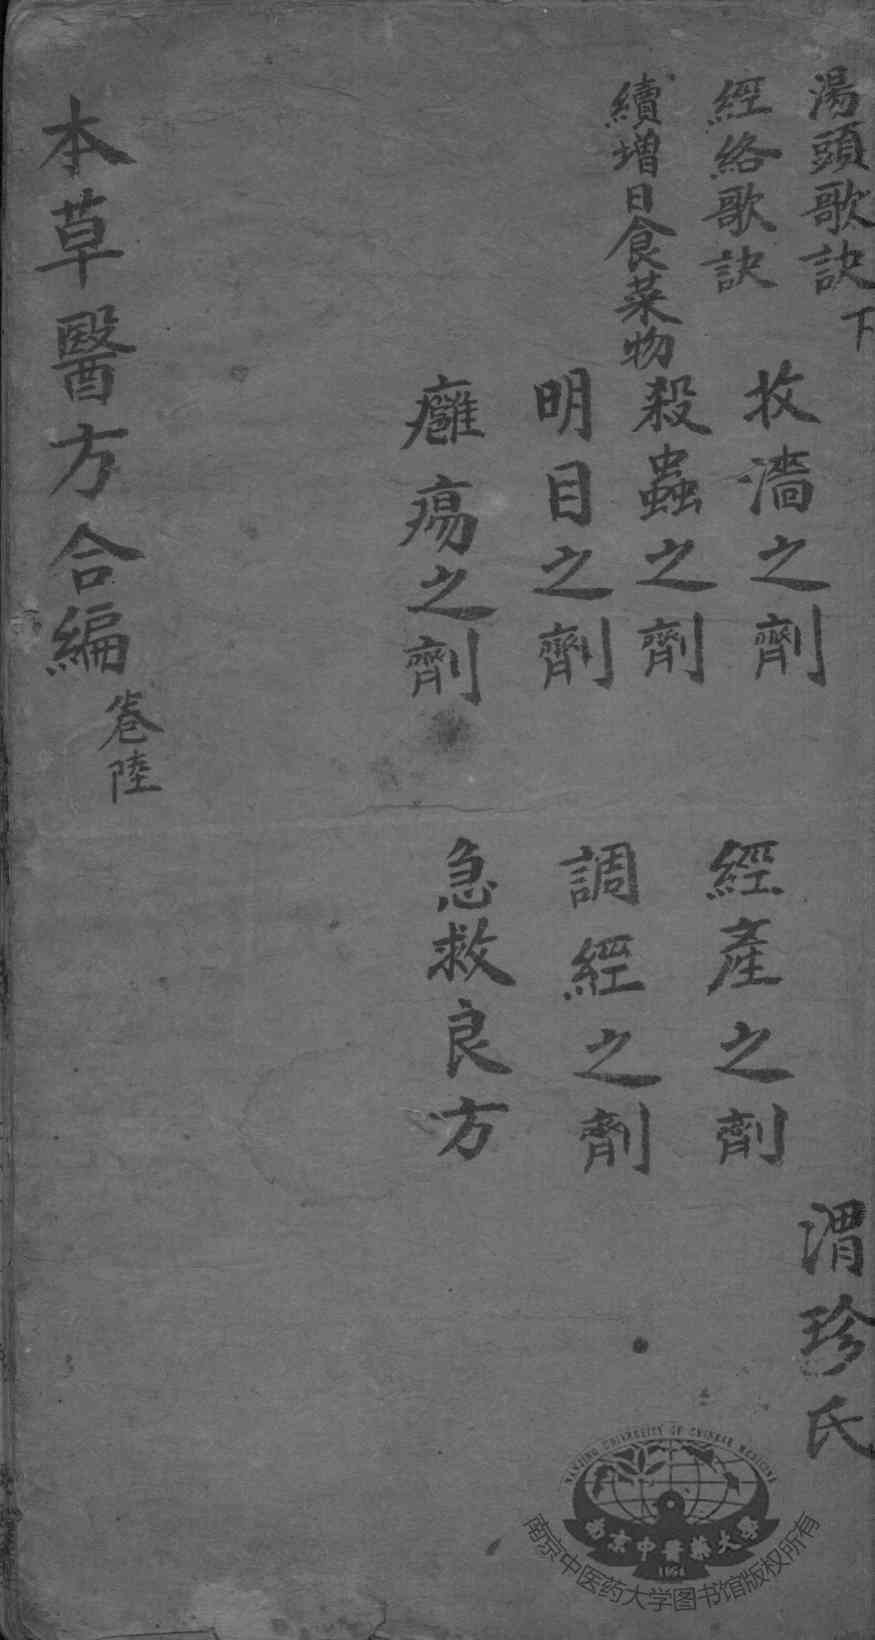 湯頭歌訣下
經絡歌訣
續增日食菜物
收濇之劑
殺蟲之劑
明目之劑
癰瘍之劑
經產之劑
調經之劑
急救良方
渭珍氏
本草醫方合編
卷陸
NANJING UNIVERSITY OF CHINESE MEDICINE
南京中醫藥大學
1954
南京中医药大学图书馆版权所有